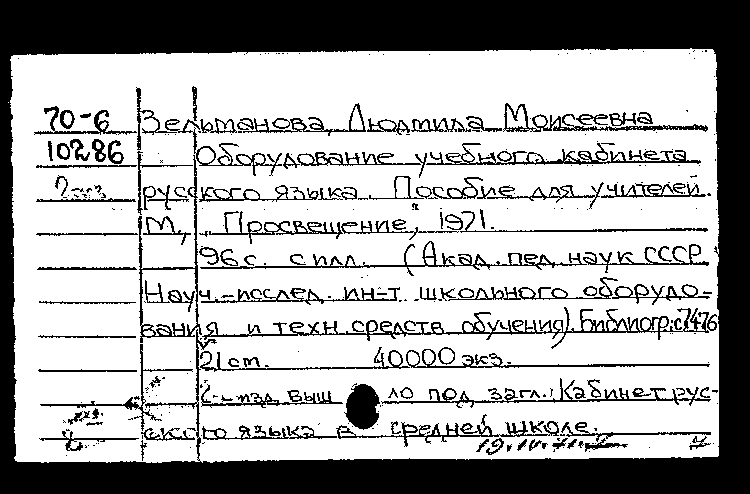 70-6 Зельманова, Людмила Моисеевна
10286 Оборудование учебного кабинета
2 экз. русского языка. Пособие для учителей.
М., "Просвещение", 1971.
96 с. с илл. (Акад. пед. наук СССР.
Науч.-исслед. ин-т школьного оборудо-
вания и техн. средств обучения). Библиогр.: с.
21 см. 40000 экз.
изд. выш ло под загл.: Кабинет рус-
ского языка в средней школе.